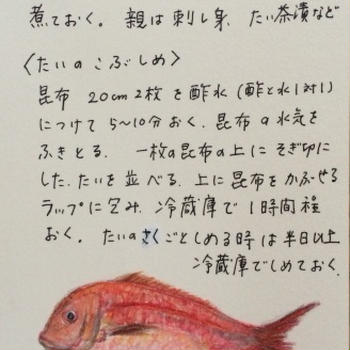 煮ておく。親は刺し身、たい茶漬など
〈たいのこぶしめ〉
昆布 20cm 2枚を酢水(酢と水1対1)
につけて5~10分おく。昆布の水気を
ふきとる。一枚の昆布の上にそぎ切に
した、たいを並べる。上に昆布をかぶせる
ラップに包み、冷蔵庫で1時間程
おく。たいのさくごとしめる時は半日以上
冷蔵庫でしめておく。